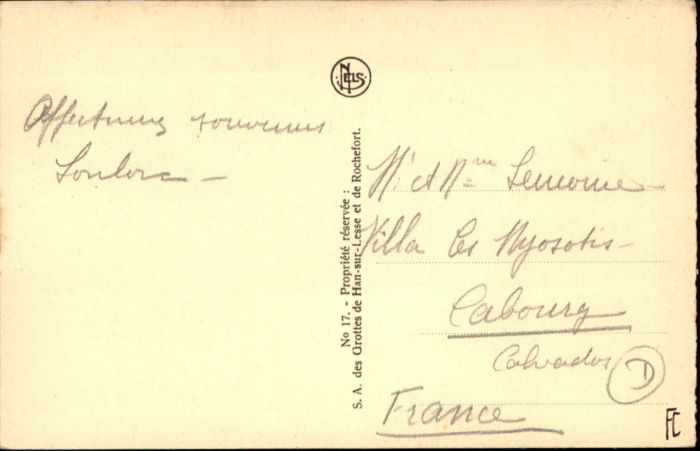 NELS
Affectueux souvenirs
No 17. - Propriété réservée :
S. A. des Grottes de Han-sur-Lesse et de Rochefort.
Mr et Mme Lemoine
Villa les Myosotis -
Cabourg
Calvados
D
France